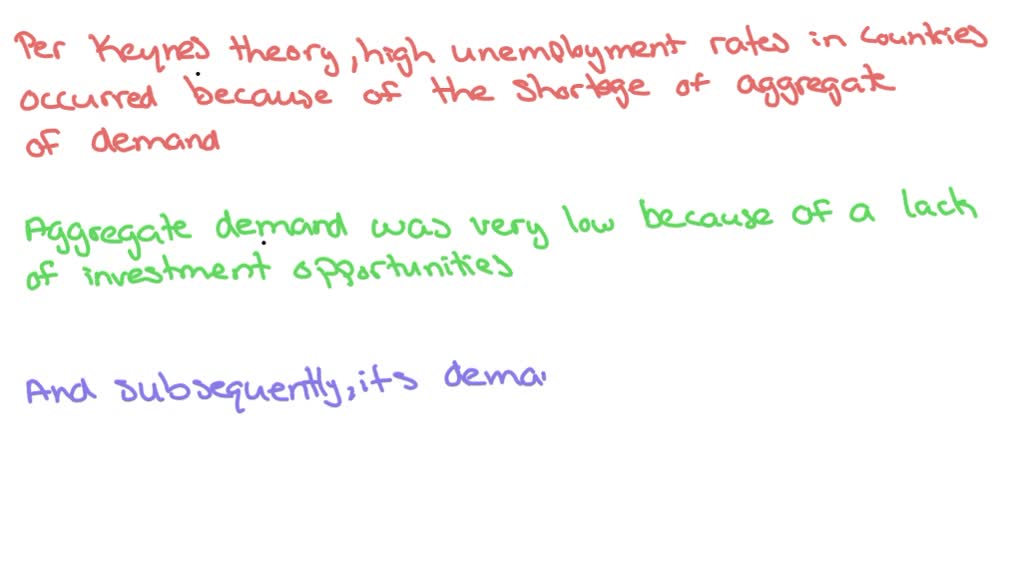 Per Keynes theory, high unemployment rates in countries
occurred because of the shortage of aggregate
of demand
Aggregate demand was very low because of a lack
of investment opportunities
And subsequently, it's dema